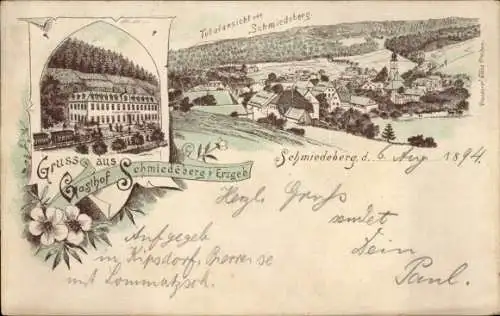 Totalansicht von
Schmiedeberg.
Gruss aus
Gasthof Schmiedeberg i Erzgeb.
Schmiedeberg, d. 6 Aug 1894.
Herzl. Gruß
sendet
Dein
Paul.
Aufgegeb
in Kipsdorf,
mit Lommatzsch.